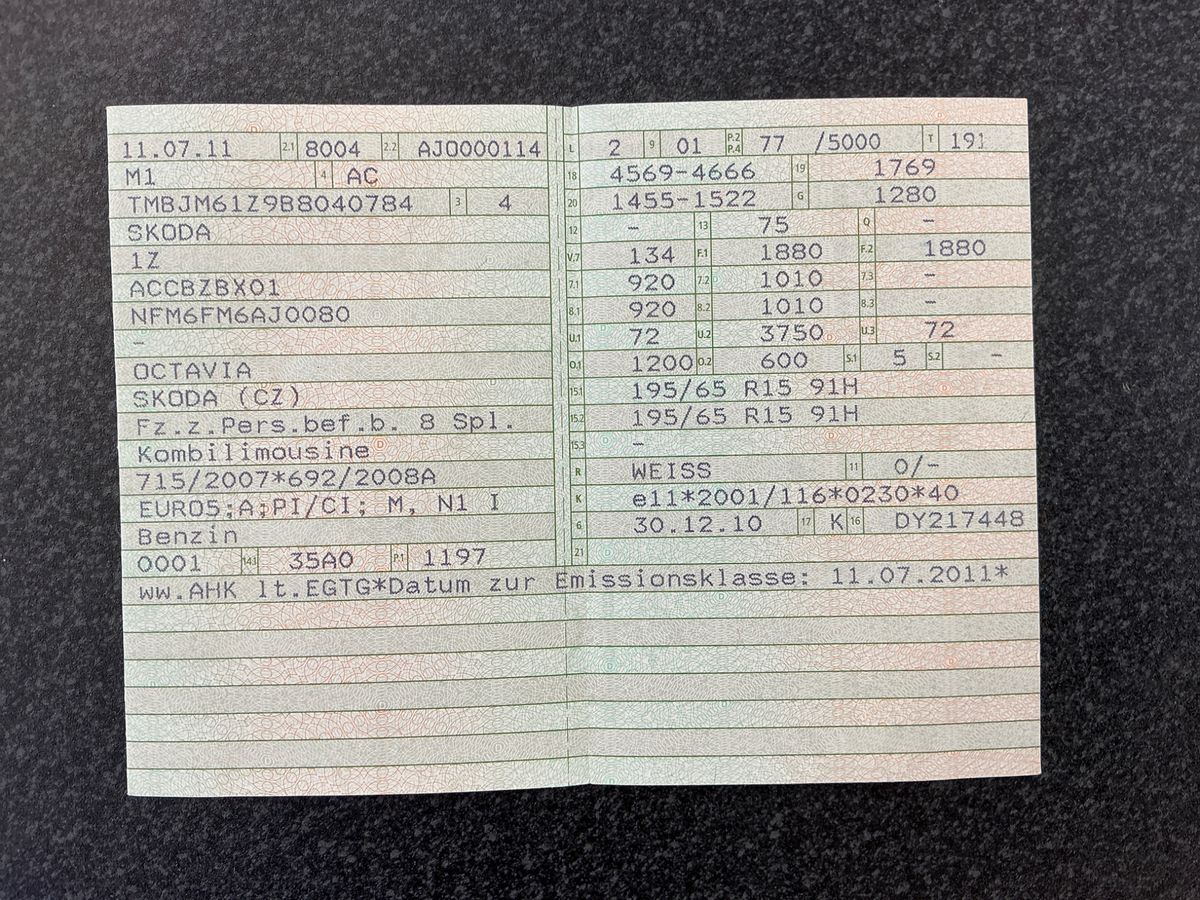 11.07.11 2.1 8004 2.2 AJ0000114
M1 4 AC
TMBJM61Z9B8040784 3 4
SKODA
1Z
ACCBZBX01
NFM6FM6AJ0080
–
OCTAVIA
SKODA (CZ)
Fz.z.Pers.bef.b. 8 Spl.
Kombilimousine
715/2007*692/2008A
EURO5;A;PI/CI; M, N1 I
Benzin
0001 14.1 35A0 P.1 1197
L 2 9 01 P.2 P.4 77 /5000 T 191
18 4569-4666 19 1769
20 1455-1522 G 1280
12 – 13 75 Q –
V.7 134 F.1 1880 F.2 1880
7.1 920 7.2 1010 7.3 –
8.1 920 8.2 1010 8.3 –
U.1 72 U.2 3750 U.3 72
O.1 1200 O.2 600 S.1 5 S.2 –
15.1 195/65 R15 91H
15.2 195/65 R15 91H
15.3 –
R WEISS 11 0/-
K e11*2001/116*0230*40
6 30.12.10 17 K 16 DY217448
21
ww.AHK lt.EGTG*Datum zur Emissionsklasse: 11.07.2011*